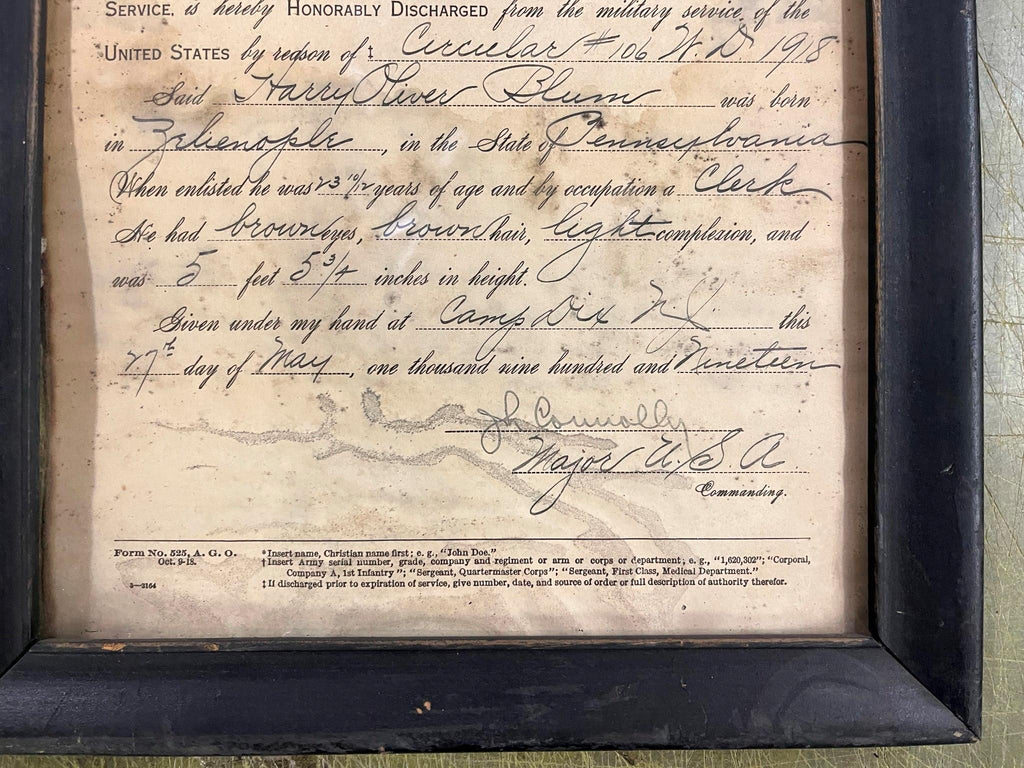 SERVICE, is hereby HONORABLY DISCHARGED from the military service of the
UNITED STATES by reason of ‡ Circular #106 W.D. 1918
Said Harry Oliver Blum was born
in Zelienople, in the State of Pennsylvania
When enlisted he was 23 10/12 years of age and by occupation a Clerk
He had brown eyes, brown hair, light complexion, and
was 5 feet 5 3/4 inches in height.
Given under my hand at Camp Dix NJ this
27th day of May, one thousand nine hundred and Nineteen
Connolly
Major U.S.A
Commanding.
Form No. 525, A. G. O. *Insert name, Christian name first; e. g., "John Doe."
Oct. 9-18. †Insert Army serial number, grade, company and regiment or arm or corps or department; e. g., "1,620,302"; "Corporal,
Company A, 1st Infantry"; "Sergeant, Quartermaster Corps"; "Sergeant, First Class, Medical Department."
3—3164 ‡If discharged prior to expiration of service, give number, date, and source of order or full description of authority therefor.